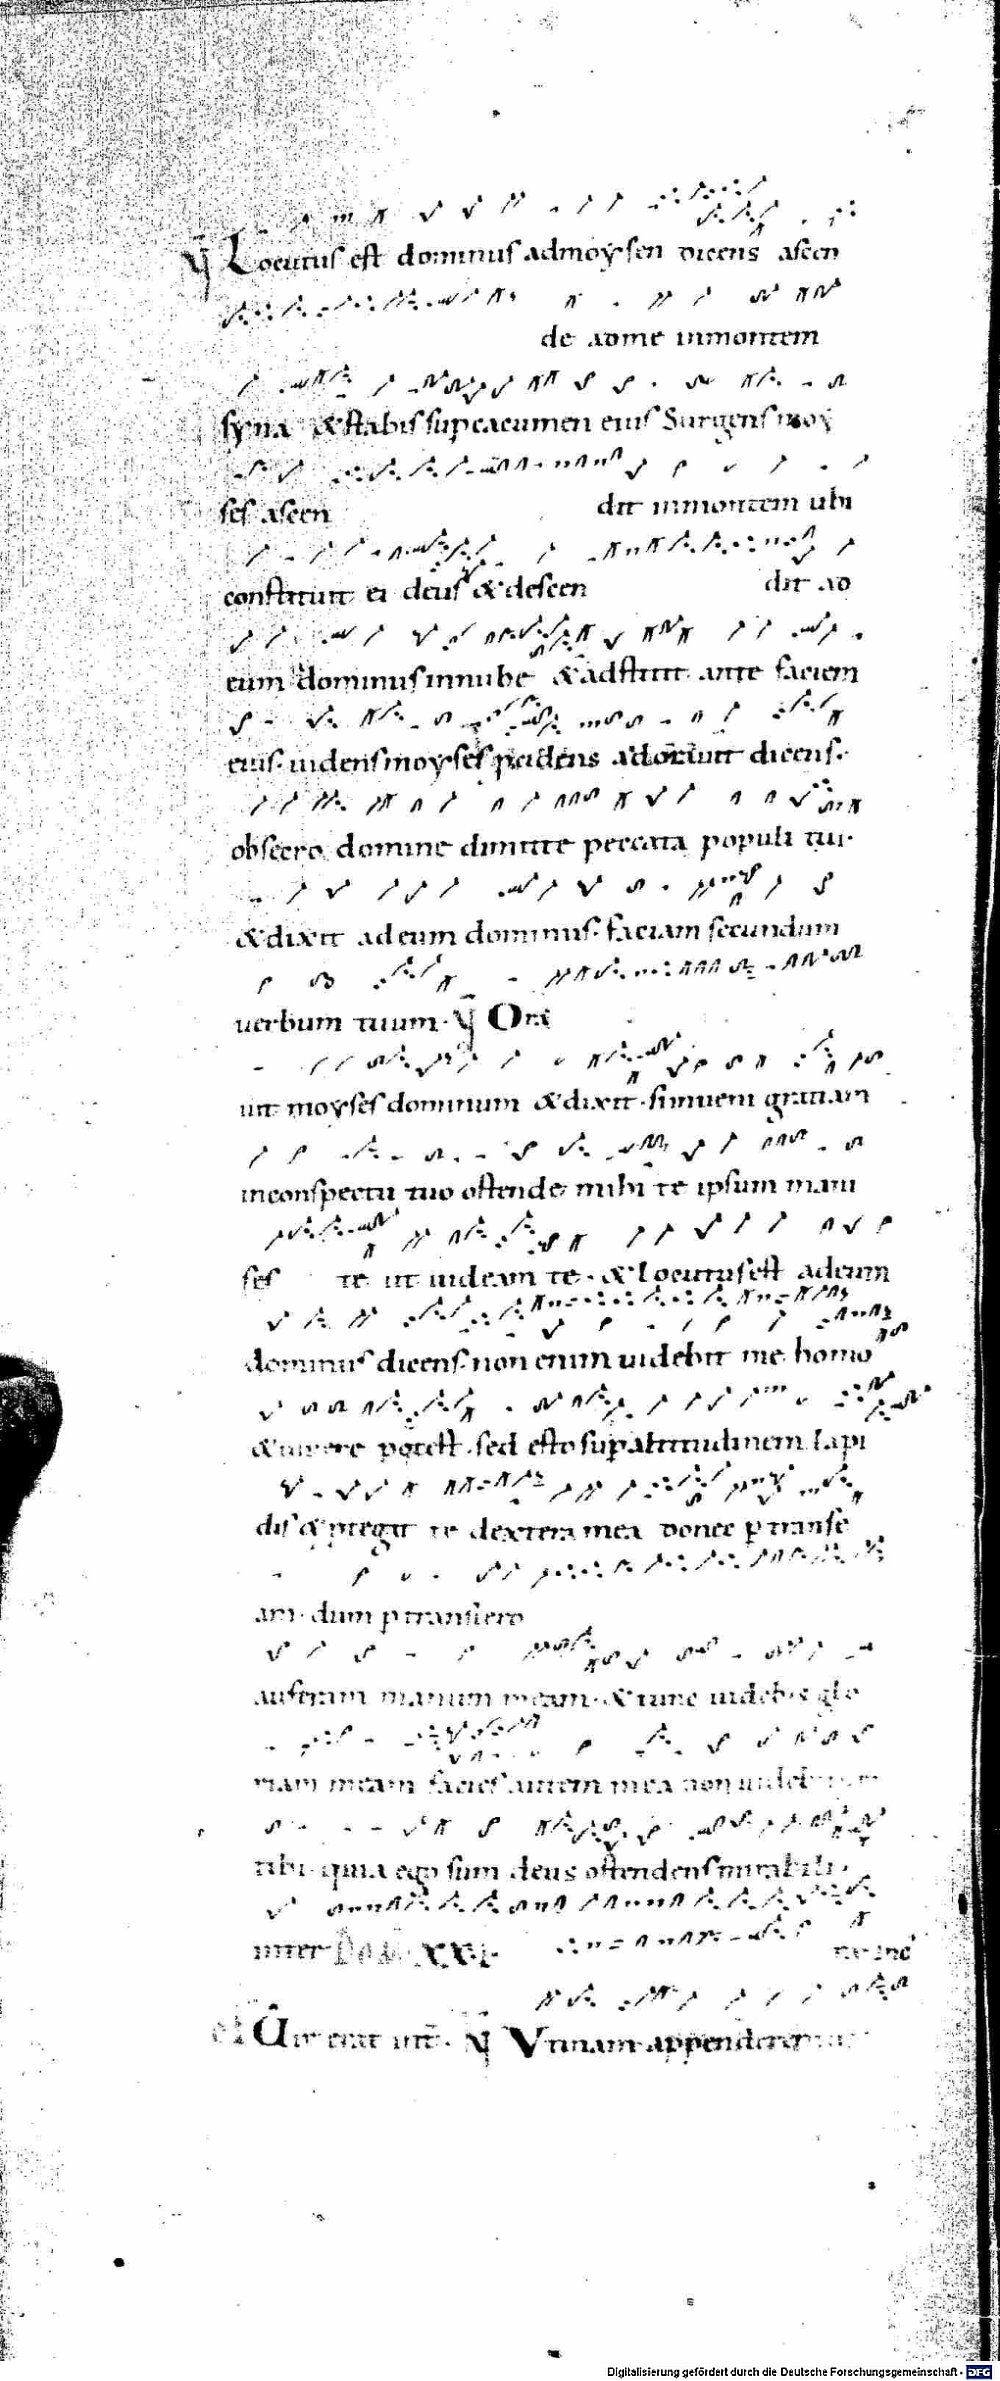 V Locutus est dominus ad moysen dicens ascen
de ad me in montem
syna & stabis sup cacumen eius Surgens moy
ses ascen dit in montem ubi
constituit ei deus & descen dit ad
eum dominus in nube & adstitit ante faciem
eius. uidens moyses pcidens adorauit dicens.
obsecro domine dimitte peccata populi tui.
& dixit ad eum dominus. faciam secundum
uerbum tuum. V Ora
uit moyses dominum & dixit. si inueni gratiam
in conspectu tuo ostende mihi te ipsum mani
fes te ut uideam te. & locutus est ad eum
dominus dicens. non enim uidebit me homo
& uiuere potest. sed esto sup altitudinem lapi
dis & pteget te dextera mea donec p transe
am. dum p transiero
auferam manum meam. & tunc uidebis glo
riam meam facies autem mea non uidebitur
tibi quia ego sum deus ostendens mirabili
in ter XXI.
Uir erat in t. V Vtinam appenderentur
Digitalisierung gefördert durch die Deutsche Forschungsgemeinschaft - DFG